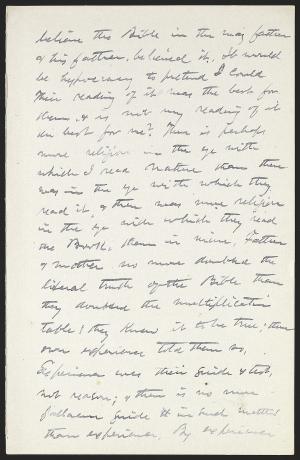 believe the Bible in the way father
& his father, believed it. It would
be hypocrisy to pretend I could
Their reading of it was the best for
them, & is not my reading of it
the best for me? There is perhaps
more religion in the eye with
which I read Nature than there
was in the eye with which they
read it, & there was more religion
in the eye with which they read
the Book, than in mine. Father
& mother no more doubted the
literal truth of the Bible than
they doubted the multiplication
table! they knew it to be true; their
own experience told them so,
Experience was their guide & test,
not reason; & there is no more
fallacious guide in such matters
than experience. By experience